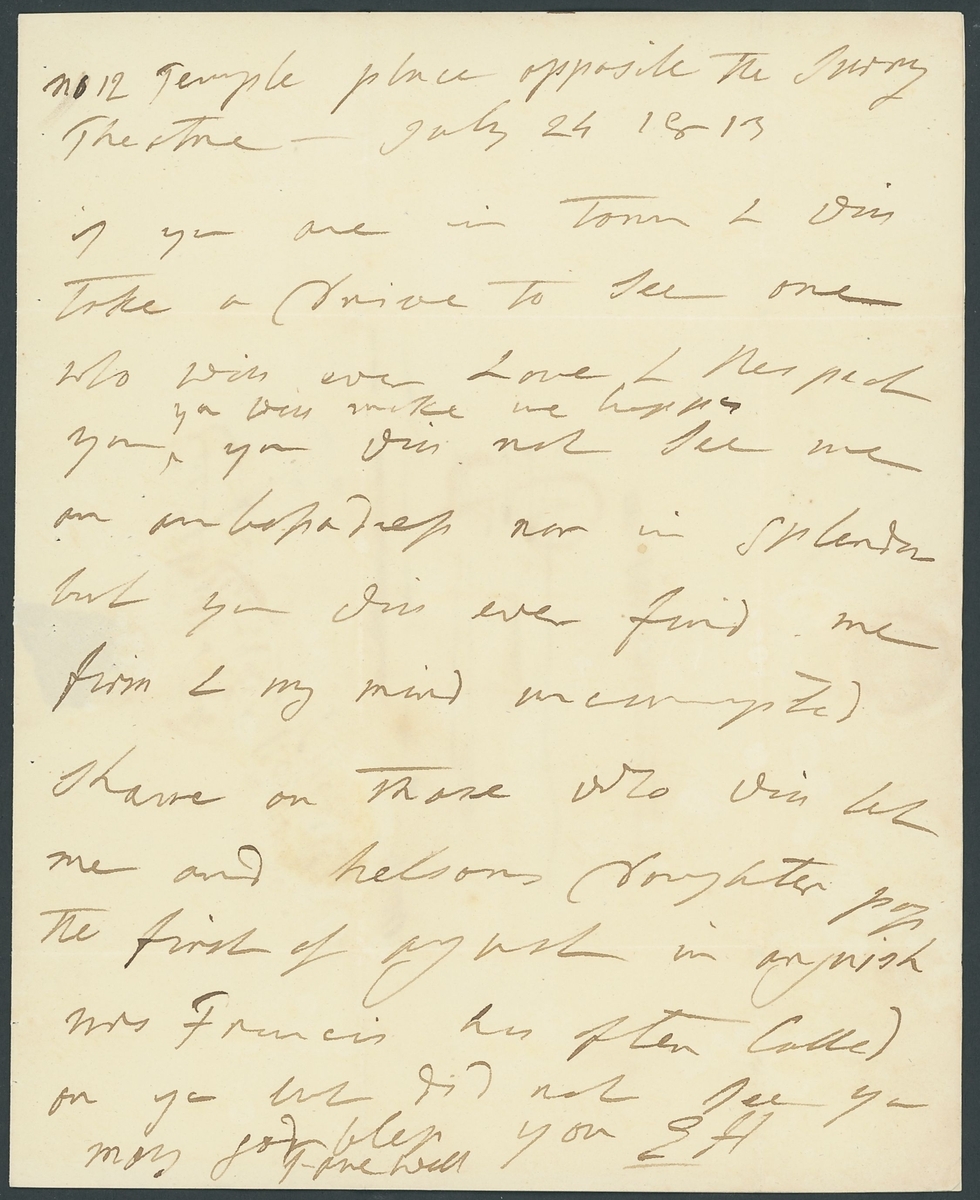 no 12 Temple place opposite the Surry
Theatre — july 24 1813
if you are in Town & will
take a Drive to See one
who will ever Love & Respect
you will make me happy
you, you will not See me
an ambassadress nor in Splendor
but you will ever find me
firm & my mind uncorrupted
Shame on those who will let
me and Nelsons Daughter pass
the first of august in anguish
Mrs Francis has often Called
on you but did not See you
may god bless you EH
Farewell